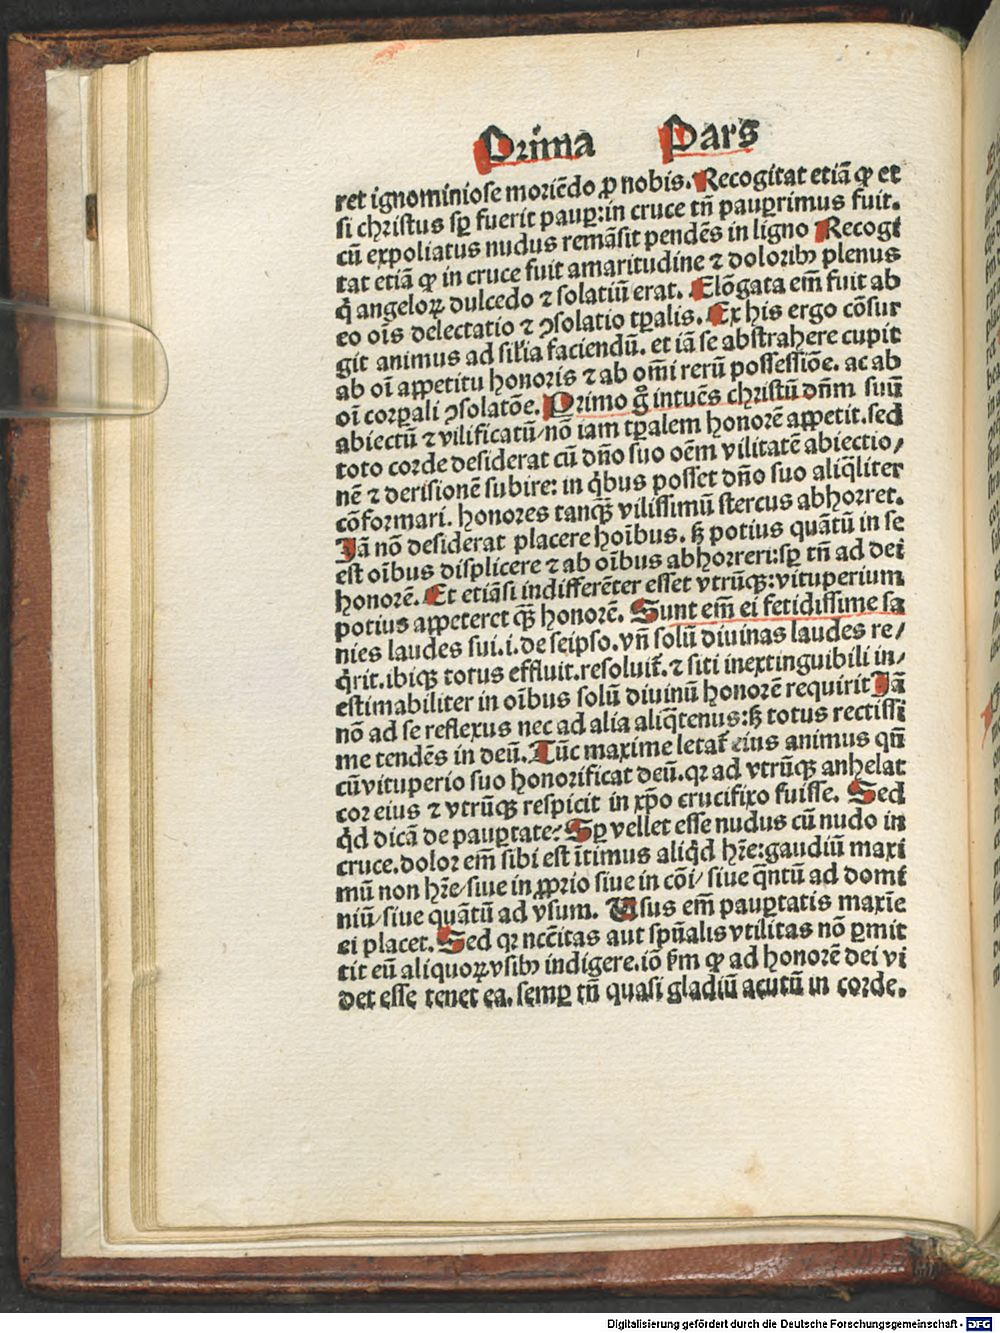 Prima Pars
ret ignominiose moriēdo ꝓ nobis. Recogitat etiā ꝙ et
si christus sꝑ fuerit pauꝑ: in cruce tñ pauꝑrimus fuit.
cū expoliatus nudus remāsit pendēs in ligno Recogi
tat etiā ꝙ in cruce fuit amaritudine ⁊ doloribꝫ plenus
q̇ angeloꝝ dulcedo ⁊ solatiū erat. Elōgata em̄ fuit ab
eo oīs delectatio ⁊ ꝯsolatio tꝑalis. Ex his ergo cōsur
git animus ad sil̄ia faciendū. et iā se abstrahere cupit
ab oī appetitu honoris ⁊ ab om̄i rerū possessiōe. ac ab
oī corꝑali ꝯsolatōe. Primo g̊ intuēs christū dn̄m suū
abiectū ⁊ vilificatū/ nō iam tꝑalem honorē appetit. sed
toto corde desiderat cū dño suo oēm vilitatē abiectio/
nē ⁊ derisionē subire: in q̇bus posset dño suo aliq̄liter
cōformari. honores tanqꝫ vilissimū stercus abhorret.
Iā nō desiderat placere hoībus. sꝫ potius quātū in se
est oībus displicere ⁊ ab oībus abhorreri: sꝑ tñ ad dei
honorē. Et etiāsi indifferēter esset vtrūqꝫ: vituperium
potius appeteret qꝫ̄ honorē. Sunt em̄ ei fetidissime sa
nies laudes sui. i. de seipso. vñ solū diuinas laudes re/
q̇rit. ibiqꝫ totus effluit. resoluit̄. ⁊ siti inextinguibili in/
estimabiliter in oībus solū diuinū honorē requirit Iā
nō ad se reflexus nec ad alia aliq̄tenus: sꝫ totus rectissi
me tendēs in deū. Tūc maxime letat̄ eius animus qn̄
cū vituperio suo honorificat deū. qꝛ ad vtrūqꝫ anhelat
cor eius ⁊ vtrūqꝫ respicit in xp̄o crucifixo fuisse. Sed
q̇d dicā de pauꝑtate? Sꝑ vellet esse nudus cū nudo in
cruce. dolor em̄ sibi est ītimus aliq̇d hr̄e: gaudiū maxi
mū non hr̄e/ siue in ꝓprio siue in cōi/ siue q̄ntū ad domi
niū/ siue quātū ad vsum. Usus em̄ pauꝑtatis maxīe
ei placet. Sed qꝛ nc̄citas aut spūalis vtilitas nō ꝑmit
tit eū aliquoꝝ vsibꝫ indigere. iō ẜm ꝙ ad honorē dei vi
det esse tenet ea. semꝑ tñ quasi gladiū acutū in corde.
Digitalisierung gefördert durch die Deutsche Forschungsgemeinschaft - DFG